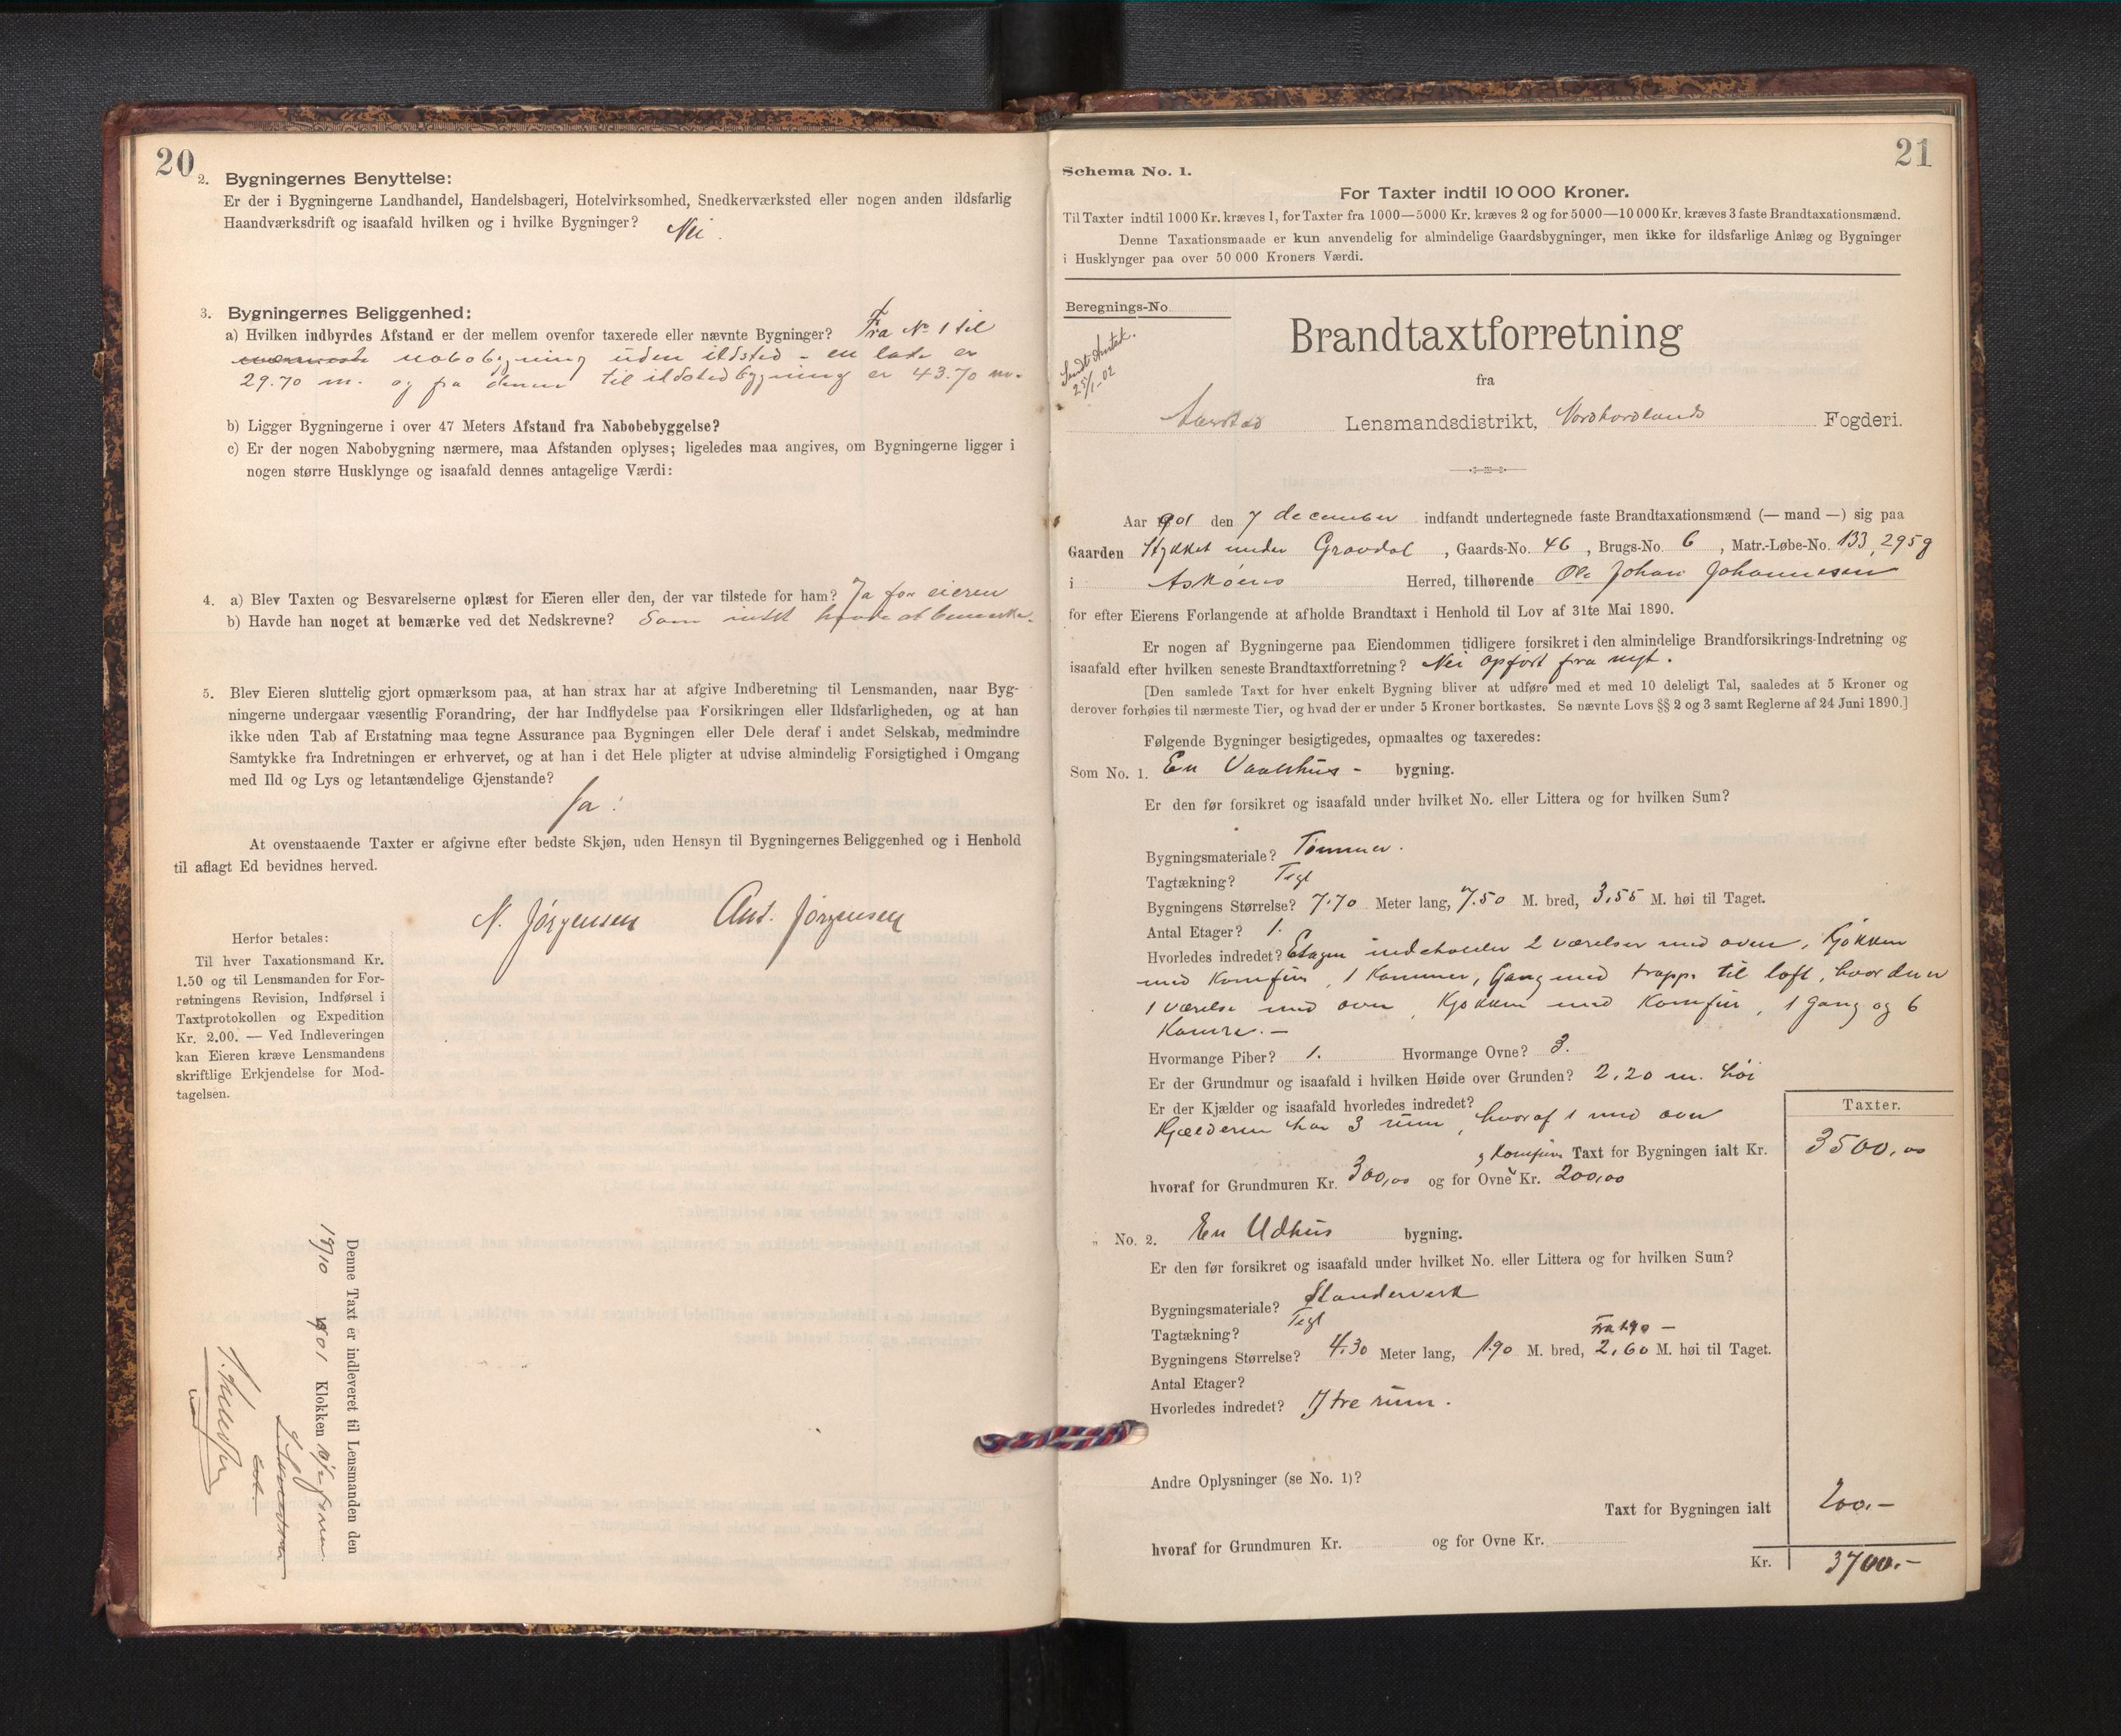 20
2. Bygningernes Benyttelse:
Er der i Bygningerne Landhandel, Handelsbageri, Hotelvirksomhed, Snedkerværksted eller nogen anden ildsfarlig
Haandværksdrift og isaafald hvilken og i hvilke Bygninger? Nei.
3. Bygningernes Beliggenhed:
a) Hvilken indbyrdes Afstand er der mellem ovenfor taxerede eller nævnte Bygninger? Fra No 1 til
nabobygning uden ildsted - en lade er
29.70 m. og fra denne til ildstedbygning er 43.70 m.
b) Ligger Bygningerne i over 47 Meters Afstand fra Nabobebyggelse?
c) Er der nogen Nabobygning nærmere, maa Afstanden oplyses; ligeledes maa angives, om Bygningerne ligger i
nogen større Husklynge og isaafald dennes antagelige Værdi:
4. a) Blev Taxten og Besvarelserne oplæst for Eieren eller den, der var tilstede for ham? Ja for eieren
b) Havde han noget at bemærke ved det Nedskrevne? Som intet havde at bemerke.
5. Blev Eieren sluttelig gjort opmærksom paa, at han strax har at afgive Indberetning til Lensmanden, naar Byg-
ningerne undergaar væsentlig Forandring, der har Indflydelse paa Forsikringen eller Ildsfarligheden, og at han
ikke uden Tab af Erstatning maa tegne Assurance paa Bygningen eller Dele deraf i andet Selskab, medmindre
Samtykke fra Indretningen er erhvervet, og at han i det Hele pligter at udvise almindelig Forsigtighed i Omgang
med Ild og Lys og letantændelige Gjenstande?
Ja!
At ovenstaaende Taxter er afgivne efter bedste Skjøn, uden Hensyn til Bygningernes Beliggenhed og i Henhold
til aflagt Ed bevidnes herved.
N. Jørgensen And. Jørgensen
Herfor betales:
Til hver Taxationsmand Kr.
1.50 og til Lensmanden for For-
retningens Revision, Indførsel i
Taxtprotokollen og Expedition
Kr. 2.00. — Ved Indleveringen
kan Eieren kræve Lensmandens
skriftlige Erkjendelse for Mod-
tagelsen.
Denne Taxt er indleveret til Lensmanden den
1901 Klokken
21
Schema No. 1.
For Taxter indtil 10 000 Kroner.
Til Taxter indtil 1000 Kr. kræves 1, for Taxter fra 1000—5000 Kr. kræves 2 og for 5000—10 000 Kr. kræves 3 faste Brandtaxationsmænd.
Denne Taxationsmaade er kun anvendelig for almindelige Gaardsbygninger, men ikke for ildsfarlige Anlæg og Bygninger
i Husklynger paa over 50 000 Kroners Værdi.
Beregnings-No.
Sendt
25/1-02
Brandtaxtforretning
fra
Lensmandsdistrikt, Nordhordlands Fogderi.
Aar 1901 den 7 december indfandt undertegnede faste Brandtaxationsmænd (— mand —) sig paa
Gaarden Stykket under Gravdal, Gaards-No. 46, Brugs-No. 6, Matr.-Løbe-No. 133, 295g
i Askøens Herred, tilhørende Ole Johan Johannesen
for efter Eierens Forlangende at afholde Brandtaxt i Henhold til Lov af 31te Mai 1890.
Er nogen af Bygningerne paa Eiendommen tidligere forsikret i den almindelige Brandforsikrings-Indretning og
isaafald efter hvilken seneste Brandtaxtforretning? Nei opført fra nyt.
[Den samlede Taxt for hver enkelt Bygning bliver at udføre med et med 10 deleligt Tal, saaledes at 5 Kroner og
derover forhøies til nærmeste Tier, og hvad der er under 5 Kroner bortkastes. Se nævnte Lovs §§ 2 og 3 samt Reglerne af 24 Juni 1890.]
Følgende Bygninger besigtigedes, opmaaltes og taxeredes:
Som No. 1. En Vaaleshus - bygning.
Er den før forsikret og isaafald under hvilket No. eller Littera og for hvilken Sum?
Bygningsmateriale? Tømmer.
Tagtækning? Tegl
Bygningens Størrelse? 7.70 Meter lang, 7.50 M. bred, 3,55 M. høi til Taget.
Antal Etager? 1.
Hvorledes indredet? Etagen indeholder 2 værelser med oven, Kjøkken
med Komfür, 1 Kammer, Gang med trapp til loft, hvor der er
1 værelse med oven, Kjøkken med Komfür, 1 Gang og 6
Kamre. —
Hvormange Piber? 1. Hvormange Ovne? 3.
Er der Grundmur og isaafald i hvilken Høide over Grunden? 2,20 m. høi
Er der Kjælder og isaafald hvorledes indredet?
Kjælderen har 3 rüm, hvoraf 1 med oven
Taxter.
og Komfür Taxt for Bygningen ialt Kr. 3500,00
hvoraf for Grundmuren Kr. 300,00 og for Ovne Kr. 200,00
„ No. 2. En Udhüs bygning.
Er den før forsikret og isaafald under hvilket No. eller Littera og for hvilken Sum?
Bygningsmateriale? Standerverk
Tagtækning? Tegl
Fra 1.90 —
Bygningens Størrelse? 4.30 Meter lang, 1.90 M. bred, 2,60 M. høi til Taget.
Antal Etager?
Hvorledes indredet? I tre rüm.
Andre Oplysninger (se No. 1)?
Taxt for Bygningen ialt 200.-
hvoraf for Grundmuren Kr. og for Ovne Kr.
Kr. 3700.-